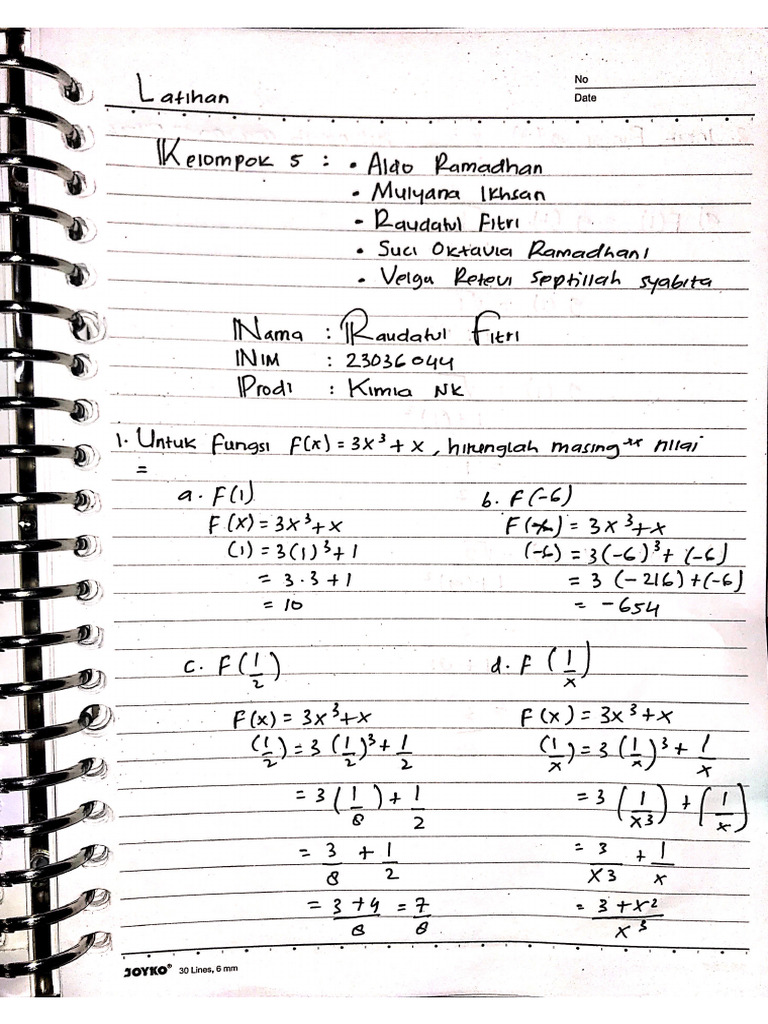 No
Date
Latihan
Kelompok 5 : • Aldo Ramadhan
• Mulyana Ikhsan
- Raudatul Fitri
• Suci Oktavia Ramadhani
• Velga Retevi Septillah Syabita
Nama : Raudatul Fitri
NIM : 23036044
Prodi : Kimia NK
1. Untuk Fungsi F(x) = 3x³ + x, hitunglah masing** nilai
=
a. F(1)
F(x) = 3x³ + x
(1) = 3(1)³ + 1
= 3 . 3 + 1
= 10
b. F(-6)
F(-6) = 3x³ + x
(-6) = 3(-6)³ + (-6)
= 3 (-216) + (-6)
= -654
c. F(1/2)
F(x) = 3x³ + x
(1/2) = 3 (1/2)³ + 1/2
= 3 (1/8) + 1/2
= 3/8 + 1/2
= 3+4/8 = 7/8
d. F (1/x)
F(x) = 3x³ + x
(1/x) = 3 (1/x)³ + 1/x
= 3 (1/x3) + (1/x)
= 3/x3 + 1/x
= 3+x²/x³
JOYKO® 30 Lines, 6 mm